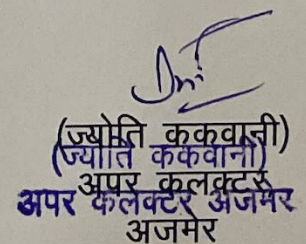 (ज्योति ककवानी)
(ज्योति ककवानी)
अपर कलक्टर
अपर कलेक्टर अजमेर
अजमेर